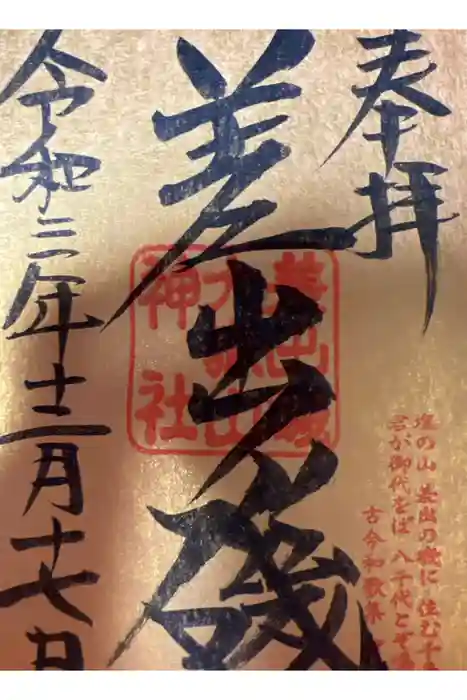 奉拝
塩の山 差出の磯に 住む千
君が御代をば 八千代とぞ
古今和歌集
差出磯
差出磯
大嶽山
神社
令和三年十二月十七日